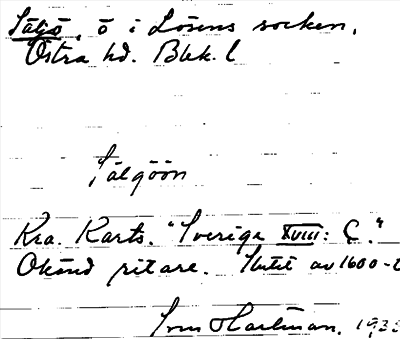 Säljö, ö i Lösens socken,
Östra hd. Blek. l
Sälgöön
Kra. Kart. "Sverige XVIII: C."
Okänd ritare. Slutet av 1600-t
Hartman. 193